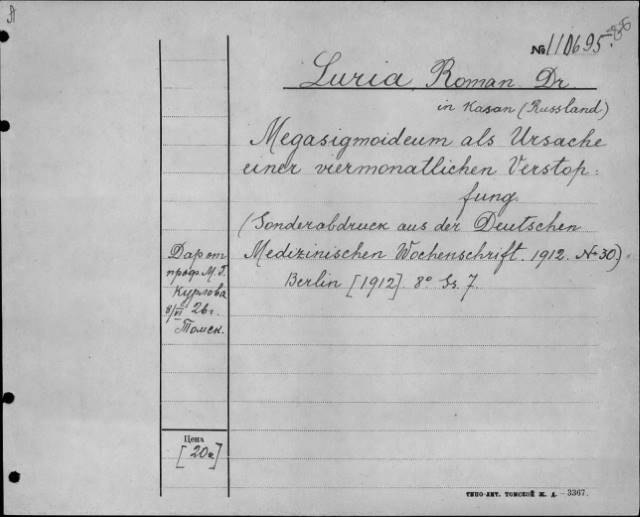 № 110695.
Luria, Roman Dr.
in Kasan (Russland)
Megasigmoideum als Ursache
einer viermonatlichen Verstop=
fung.
(Sonderabdruck aus der Deutschen
Medizinischen Wochenschrift. 1912. № 30)
Berlin [1912] 8° Ss. 7.
Дар от
проф. М. Г.
Курлова
8/VI 26 г.
Томск.
Цена
[20к]
ТИПО-ЛИТ. ТОМСКОЙ Ж. Д. – 3367.